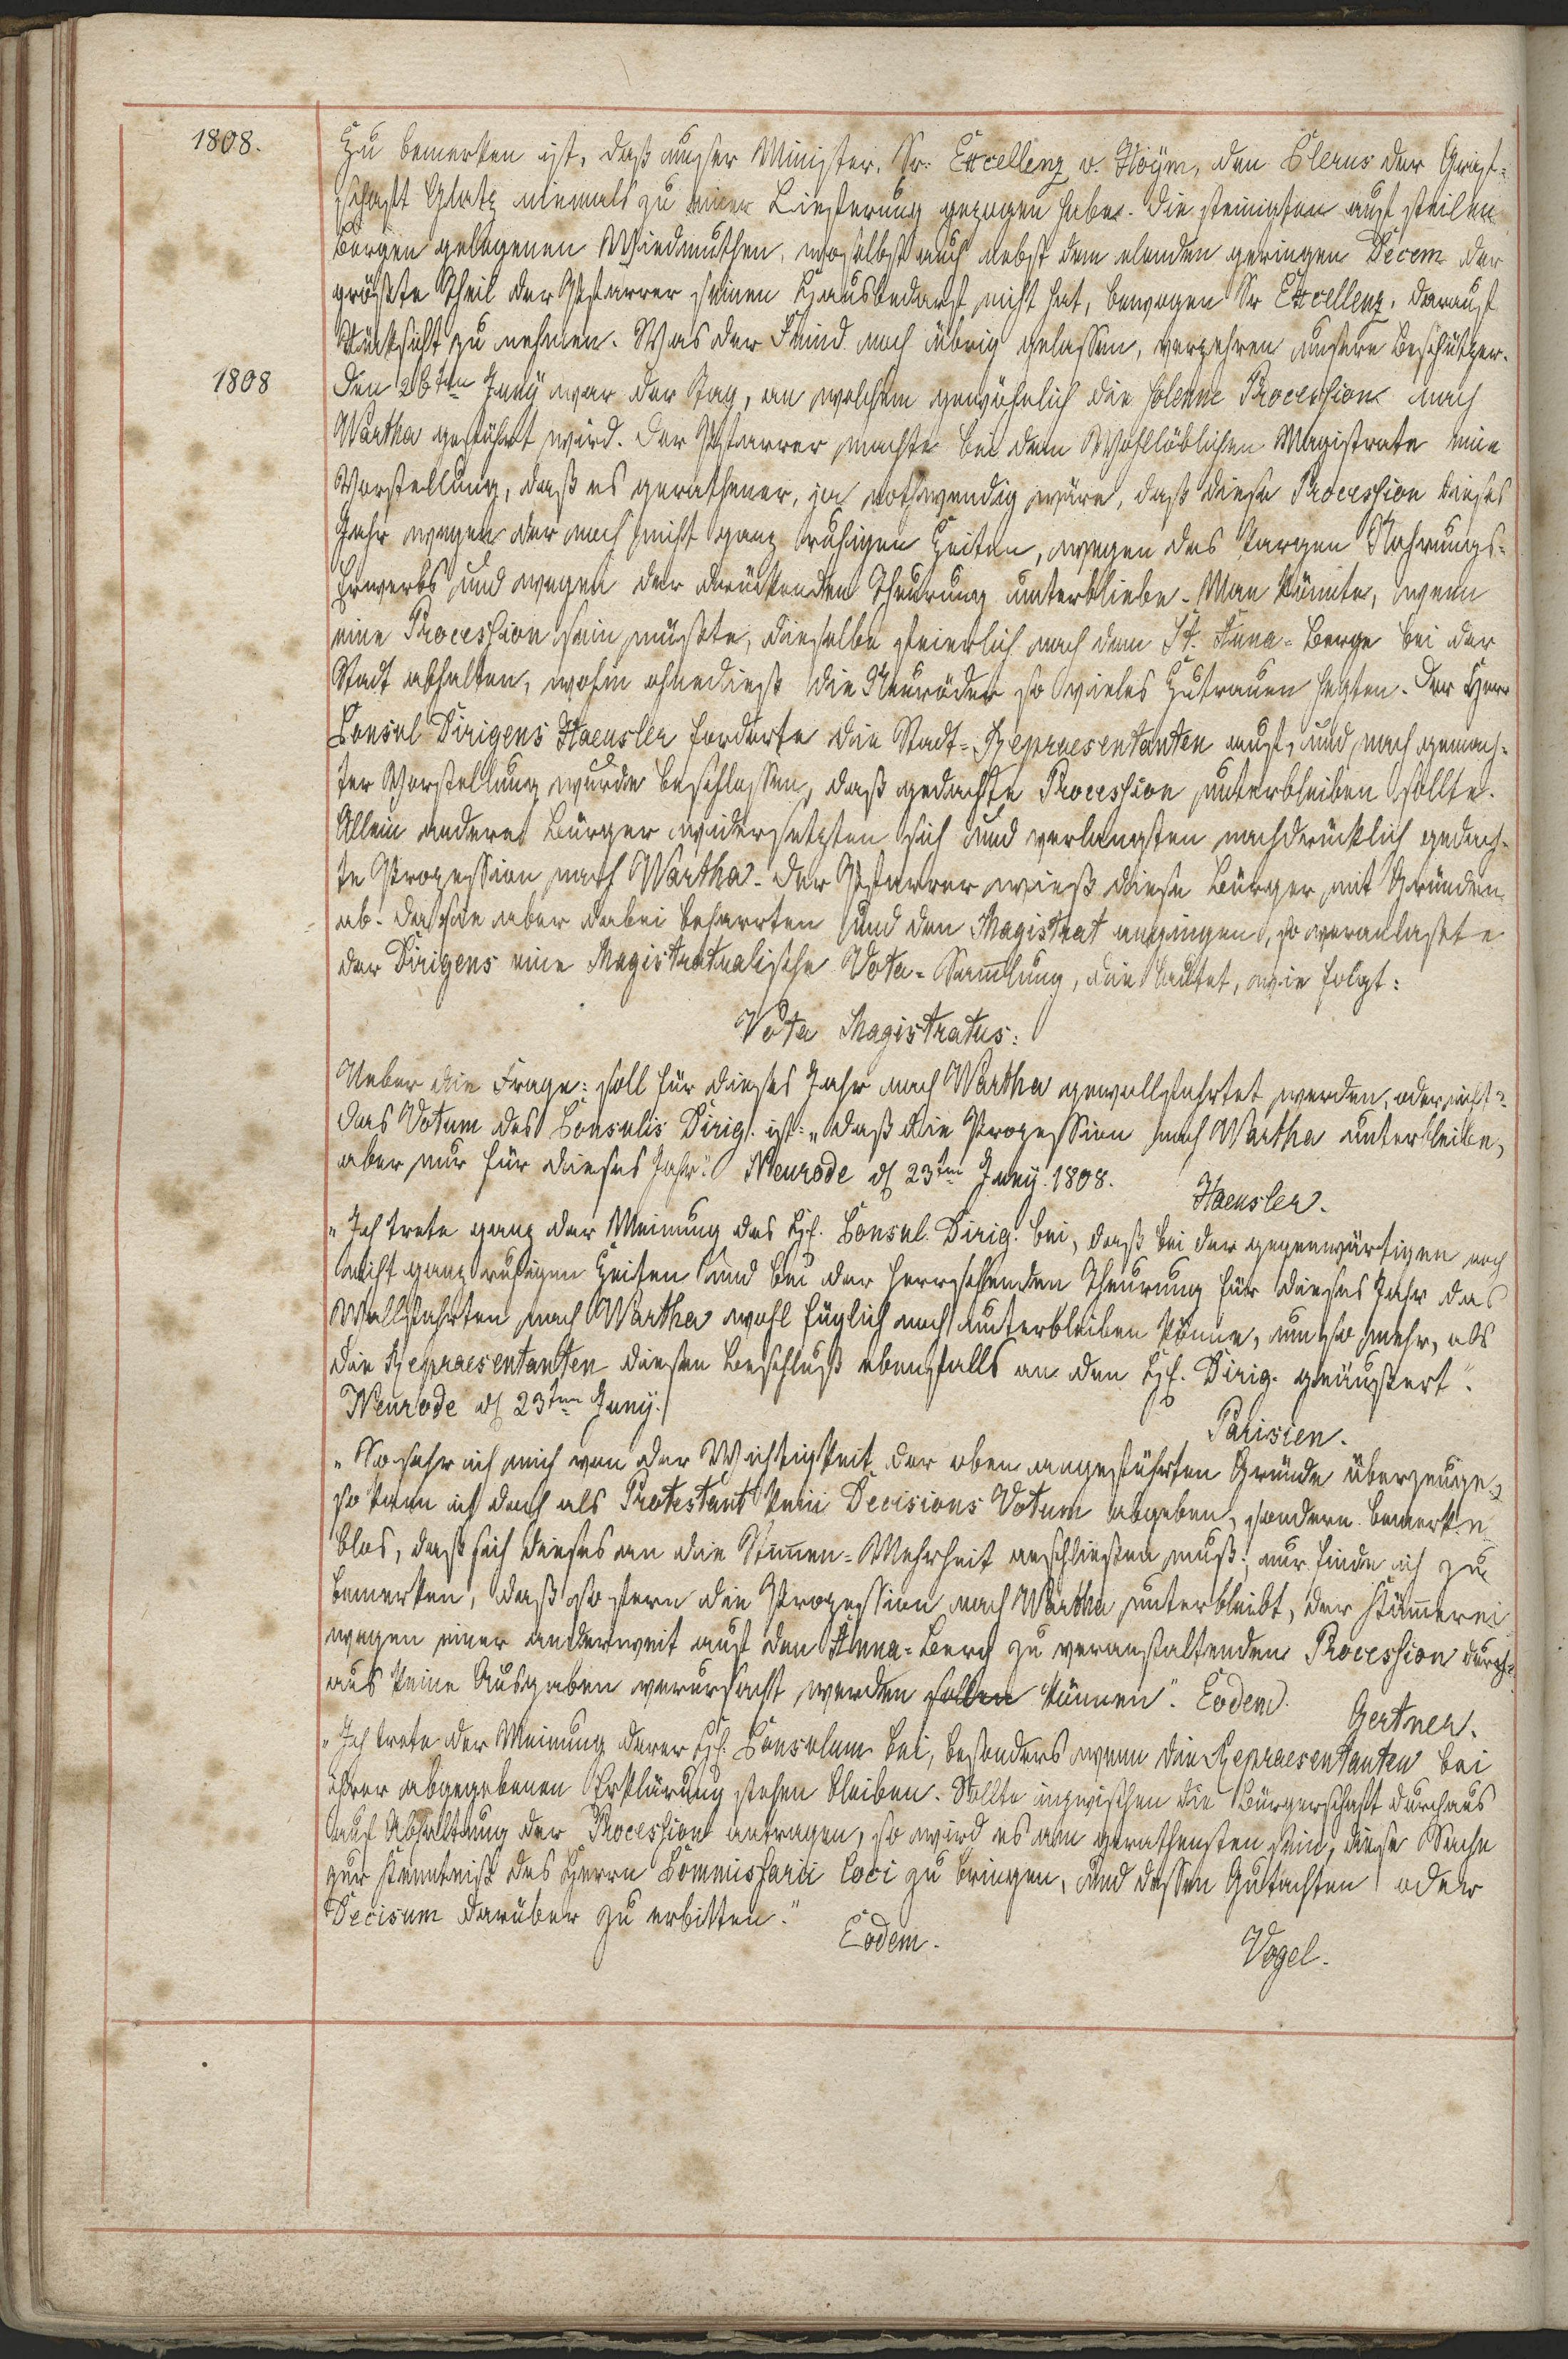 1808.
Zu bemerken ist, daß unser Minister, Sr. Excellenz v. Hoÿm, den Clerus der Graf=
schaft Glatz niemals zu einer Lieferung gezogen habe. Die steinigsten auf steilen
Bergen gelegenen Wiedmuthen, woselbst auch nebst dem elenden geringen Decem der
größte Theil der Pfarrer seinen Hausbedarf nicht hat, bewogen Sr Excellenz, darauf
Rücksicht zu nehmen. Was der Feind noch übrig gelassen, verzehren unsere Beschützer.
1808
Den 26ten Juny war der Tag, an welchem gewöhnlich die solenne Procession nach
Wartha geführt wird. Der Pfarrer machte bei dem Wohllöblichen Magistrate eine
Vorstellung, daß es gerathener, ja nothwendig wäre, daß diese Procession dieses
Jahr wegen der noch nicht ganz ruhigen Zeiten, wegen des kargen Nahrungs=
Erwerbs und wegen der drückenden Theurung unterbliebe. Man könnte, wenn
eine Procession sein müßte, dieselbe feierlich nach dem St. Anna=Berge bei der
Stadt abhalten, wohin ohnedieß die Neuröder so vieles Zutrauen hegten. Der Herr
Consul Dirigens Haensler forderte die Stadt=Repraesentanten auf, und nach gemach=
ter Vorstellung wurde beschlossen, daß gedachte Procession unterbleiben sollte.
Allein andere Bürger widersetzten sich und verlangten nachdrücklich gedach=
te Prozession nach Wartha. Der Pfarrer wieß diese Bürger mit Gründen
ab. Da sie aber dabei beharrten und den Magistrat angingen, so veranlaßte
der Dirigens eine Magistratualische Vota=Sammlung, die lautet, wie folgt:
Vota Magistratus:
Ueber die Frage: soll für dieses Jahr nach Wartha gewallfahrtet werden, oder nicht?
Das Votum des Consulis Dirig. ist: „daß die Prozession nach Wartha unterbleibe,
aber nur für dieses Jahr." Neurode d 23ten Juny. 1808.
Haensler.
„Ich trete ganz der Meinung des H. Consul. Dirig. bei, daß bei der gegenwärtigen noch
nicht ganz ruhigen Zeiten und bei der herrschenden Theurung für dieses Jahr das
Wallfahrten nach Wartha wohl füglich noch unterbleiben könne, um so mehr, als
die Repraesentanten diesen Beschluß ebenfalls an den H. Dirig. geäußert".
Neurode d 23ten Juny.
Parisien.
„So sehr ich mich von der Wichtigkeit der oben angeführten Gründe überzeuge,
so kann ich doch als Protestant kein Decisions Votum abgeben, sondern bemerke
blos, daß sich dieses an die Stimmen=Mehrheit anschließen muß; nur finde ich zu
bemerken, daß so fern die Prozession nach Wartha unterbleibt, der Kämmerei
wegen einer anderweit auf den Anna=Berg zu veranstaltenden Procession durch=
aus keine Ausgaben verursacht werden sollen können". Eodem.
Gertner.
„Ich trete der Meinung derer H. Consulum bei, besonders wenn die Repraesentanten bei
ihrer abgegebenen Erklärung stehen bleiben. Sollte inzwischen die Bürgerschaft durchaus
auf Abhaltung der Procession antragen, so wird es am gerathensten sein, diese Sache
zur Kenntniß des Herrn Commissarii loci zu bringen, und dessen Gutachten oder
Decisum darüber zu erbitten."
Eodem.
Vogel.